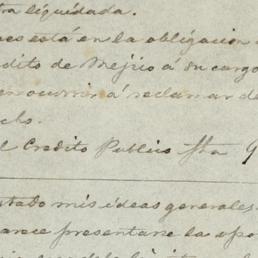 tra liquidada.
nes está en la obligacion
dito de Mejico á su cargo
ocurrir á reclamar de
cho.
l Credito Publico fha 9
stado mis ideas generales
arece presentarse la opo